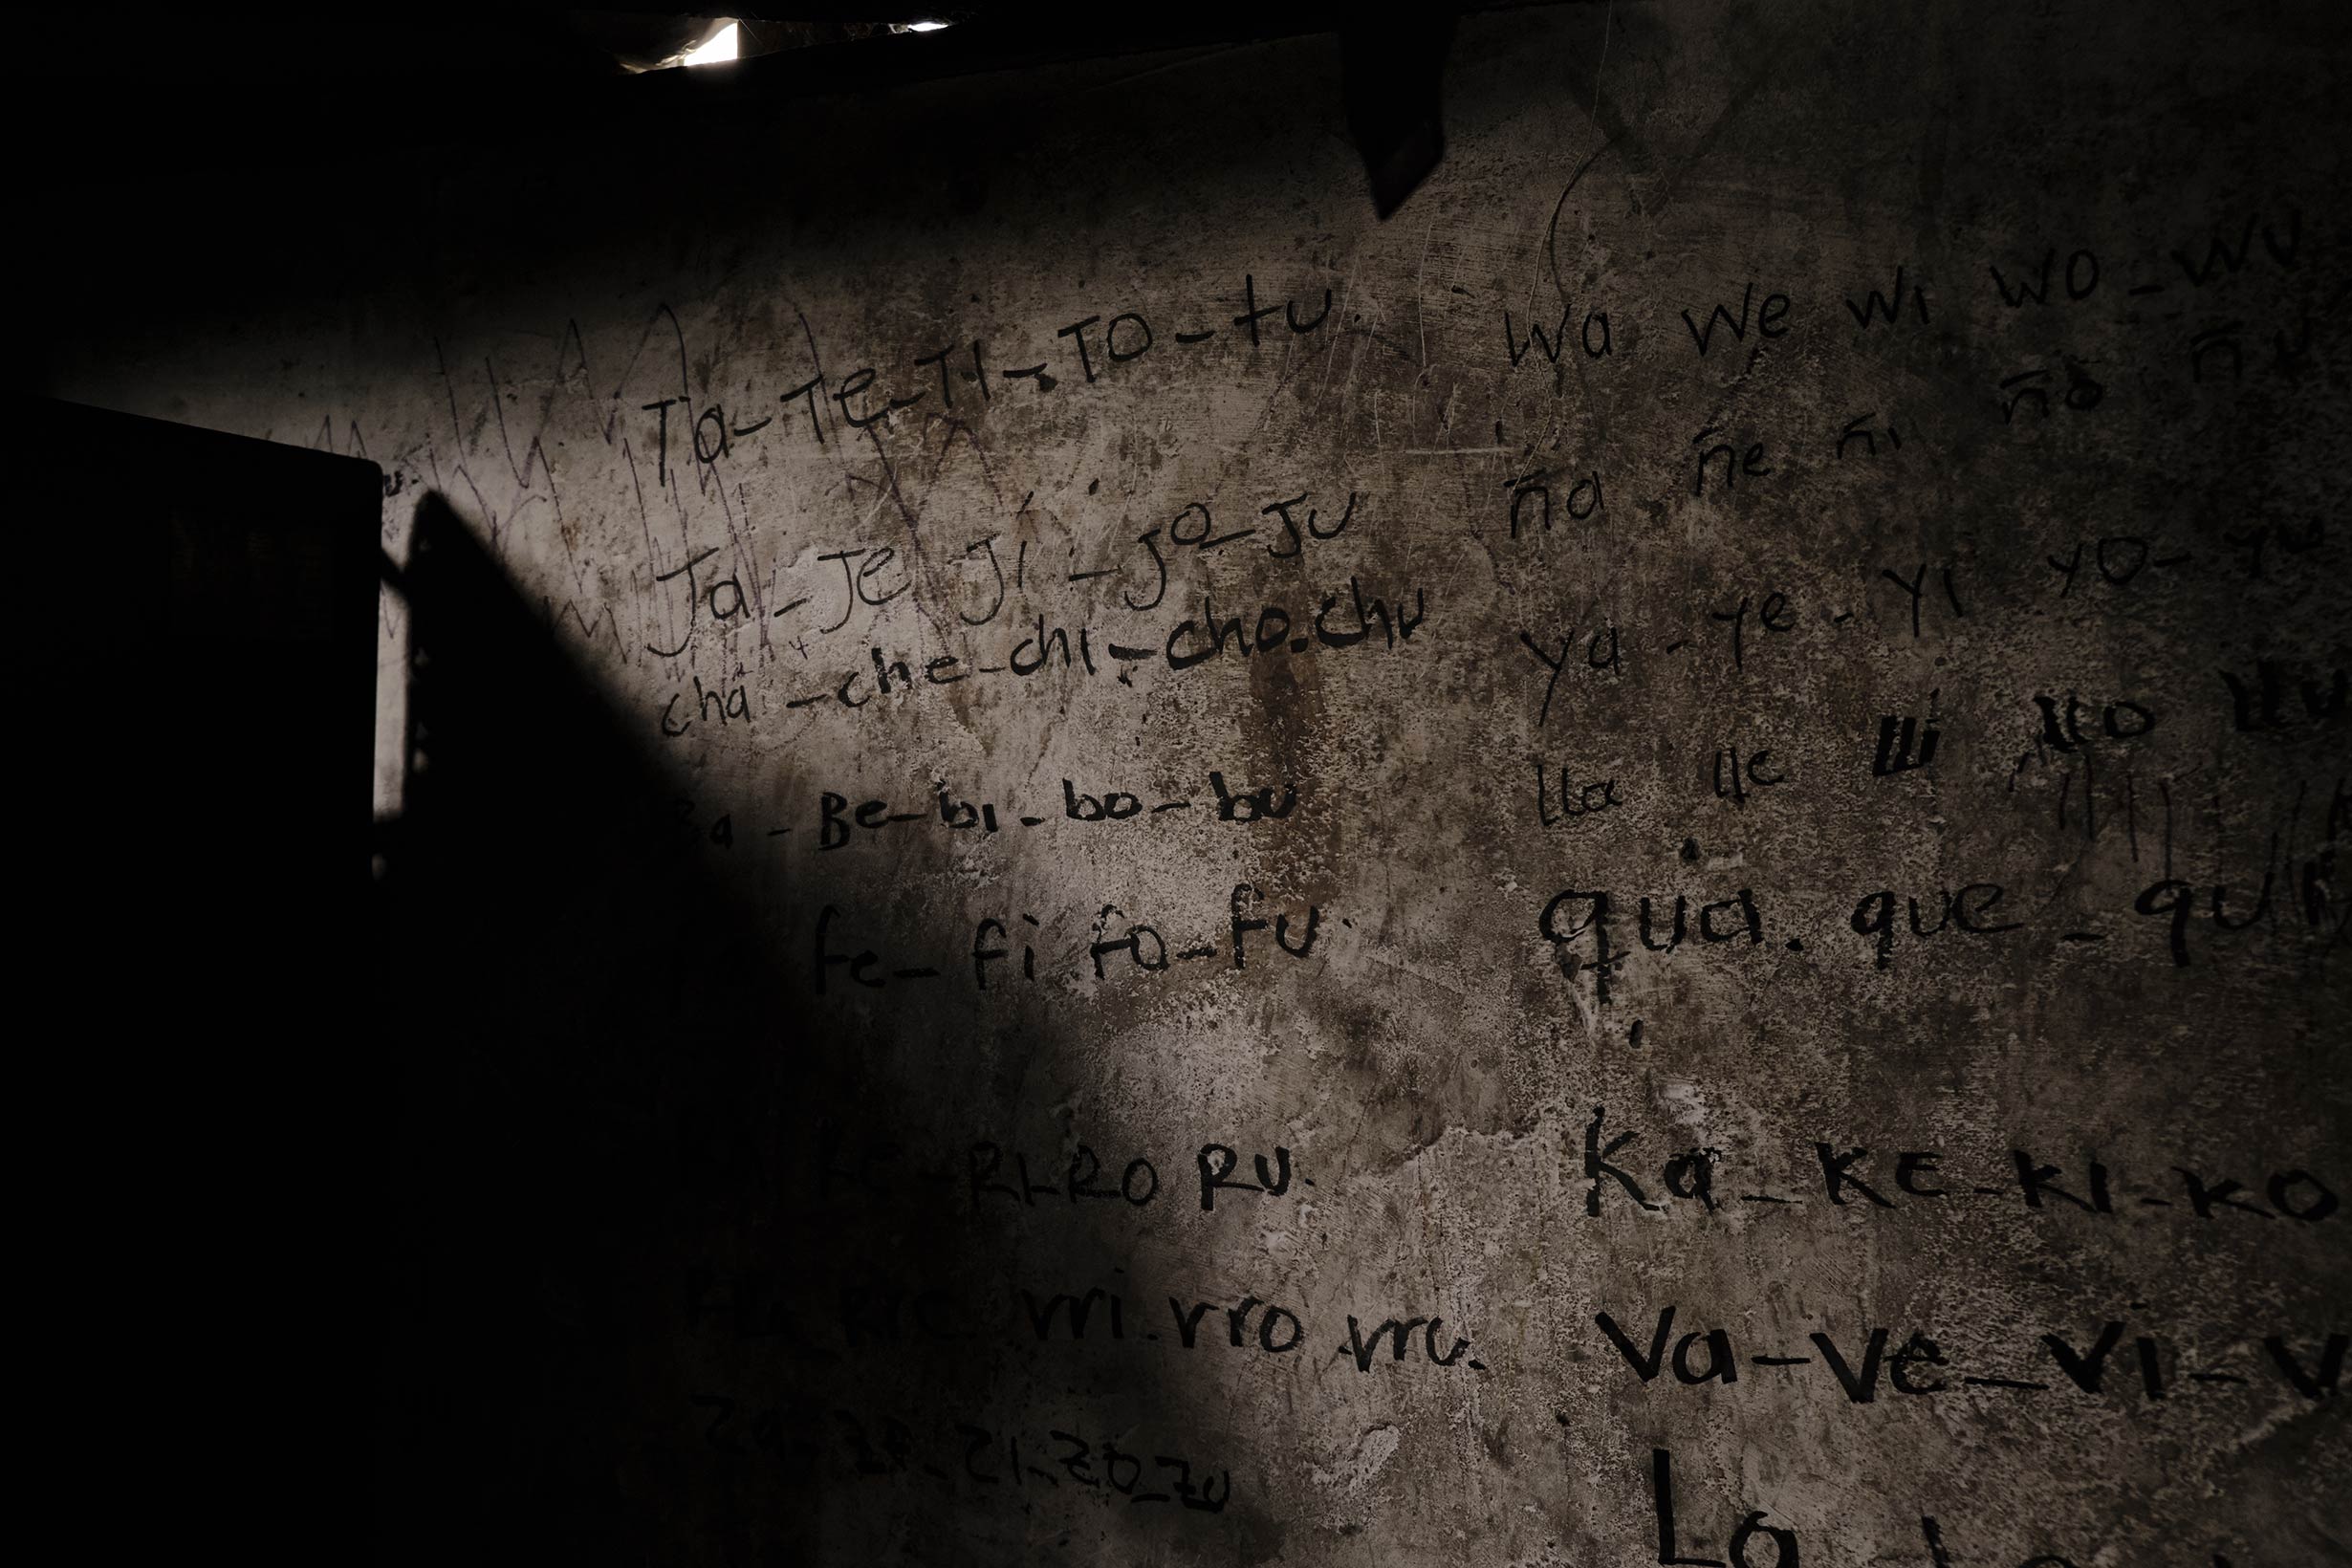 Ta-Te-Ti-TO-tu.
Ja-Je Ji-Jo-Ju
cha-che-chi-cho.chu
Be-bi-bo-bu
fe-fi fo-fu.
RI-RO RU.
rri.rro.rru.
ZI-ZO-ZU
Wa We Wi WO-WU
ña ñe ñi ño ñu
ya-ye-yi yO-yu
lla lle lli llo llu
qua.que-qui
Ka-KE-KI-KO
Va-Ve-Vi-V
La